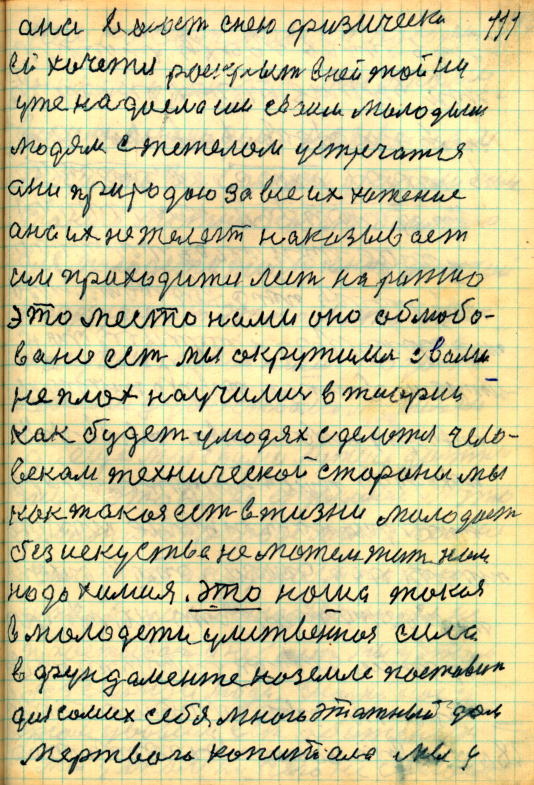 ана снею физическа 111
ей хочется вней той ни
уже надоела сили связи молодыми
людям стетелом устречатся
ани природою завсеих хотение
ана их нежелеет наказывает
им приходится лет
это место нами оно облюбо-
вано ест мы окружились свами
неплох научились втиории
как будет улюдях сделатся чело-
векам технической стораны мы
как такоя ест вжизни молодост
безискуства неможем жит нам
надо химия. это наша такая
вмолодежи умственная сила
вфундаменте наземле поставит
длясамих себя, многоэтажный дом
мертвого капитала мы у